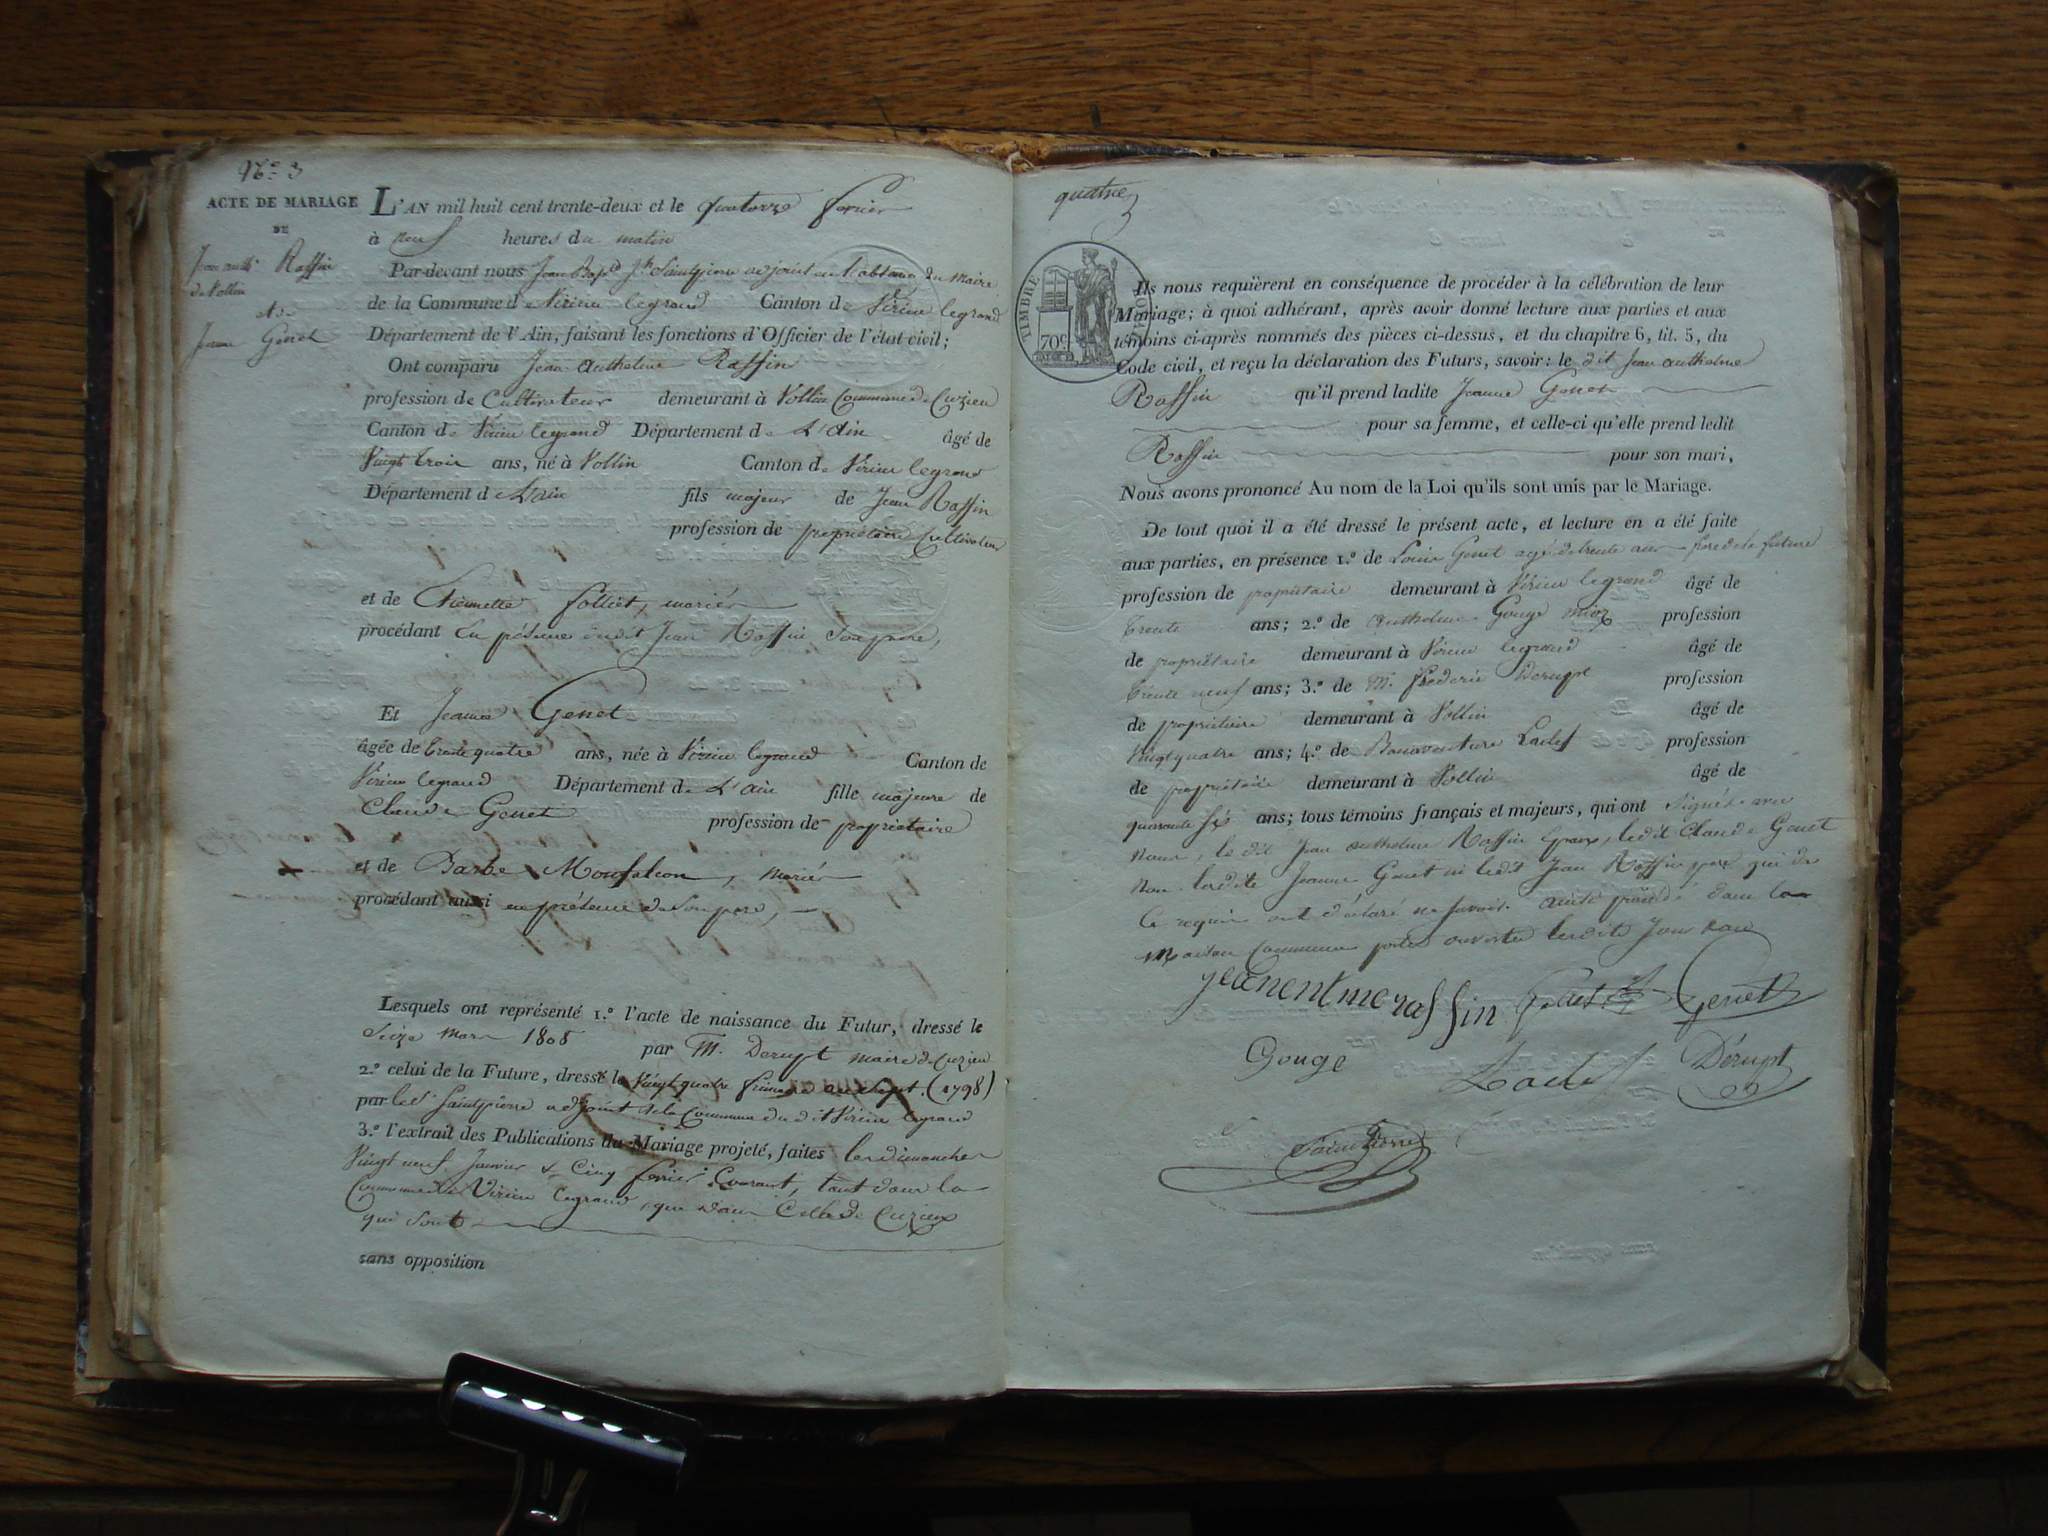 N.o 3
ACTE DE MARIAGE
DE
Jean anth.e Raffin
de Vollin
et de
Jeanne Genet
L'AN mil huit cent trente-deux et le quatorze fevrier
à neuf heures du matin
Par-devant nous Jean Bap.te J.ph Saintpierre adjoint en l'absence du Maire
de la Commune de Virieu legrand Canton de Virieu legrand
Département de l'Ain, faisant les fonctions d'Officier de l'état civil;
Ont comparu Jean anthelme Raffin
profession de Cultivateur demeurant à Vollin Commune de Cuzieu
Canton de Virieu legrand Département de L'Ain âgé de
Vingt trois ans, né à Vollin Canton de Virieu legrand
Département de L'ain fils majeur de Jean Raffin
profession de propriétaire Cultivateur
et de folliet, mariés
procédant En présence dudit Jean Raffin Son père,
Et Jeanne Genet
âgée de trente quatre ans, née à Virieu legrand Canton de
Virieu legrand Département de L'ain fille majeure de
Claude Genet profession de propriétaire
et de Barbe Monfalcon, mariés
procédant aussi en présence de Son père,
Lesquels ont représenté 1.º l'acte de naissance du Futur, dressé le
Seize Mars 1808 par M. Derupt maire de Cuzieu
2.º celui de la Future, dressé le Vingt quatre frimaire an Sept. (1798)
par le S.r Saintpierre adjoint de la Commune du dit Virieu legrand
3.º l'extrait des Publications du Mariage projeté, faites les dimanches
Vingt neuf Janvier & Cinq fevrier Courant, tant dans la
Commune de Virieu legrand, que dans Celle de Cuzieux
qui sont
sans opposition
quatre
TIMBRE ROYAL
70c
Ils nous requièrent en conséquence de procéder à la célébration de leur
Mariage; à quoi adhérant, après avoir donné lecture aux parties et aux
témoins ci-après nommés des pièces ci-dessus, et du chapitre 6, tit. 5, du
Code civil, et reçu la déclaration des Futurs, savoir: le dit Jean anthelme
Raffin qu'il prend ladite Jeanne Genet
pour sa femme, et celle-ci qu'elle prend ledit
Raffin pour son mari,
Nous avons prononcé Au nom de la Loi qu'ils sont unis par le Mariage.
De tout quoi il a été dressé le présent acte, et lecture en a été faite
aux parties, en présence 1.º de Louis Genet agé de trente ans frere de la future
profession de propriétaire demeurant à Virieu legrand âgé de
trente ans; 2.º de anthelme Gouge profession
de propriétaire demeurant à Virieu legrand âgé de
trente neuf ans; 3.º de M. frederic Derupt profession
de propriétaire demeurant à Vollin âgé de
Vingt quatre ans; 4.º de Bonaventure profession
de propriétaire demeurant à Vollin âgé de
quarante six ans; tous témoins français et majeurs, qui ont Signés avec
nous, le dit Jean anthelme Raffin Epoux, ledit Claude Genet
non ladite Jeanne Genet ni ledit Jean Raffin pere qui de
Ce requis ont déclaré ne savoir. ainsi procédé dans la
Maison Commune portes ouvertes lesdits Jour et an
jeanentme raffin Genet
Gouge Dérupt
Saintpierre